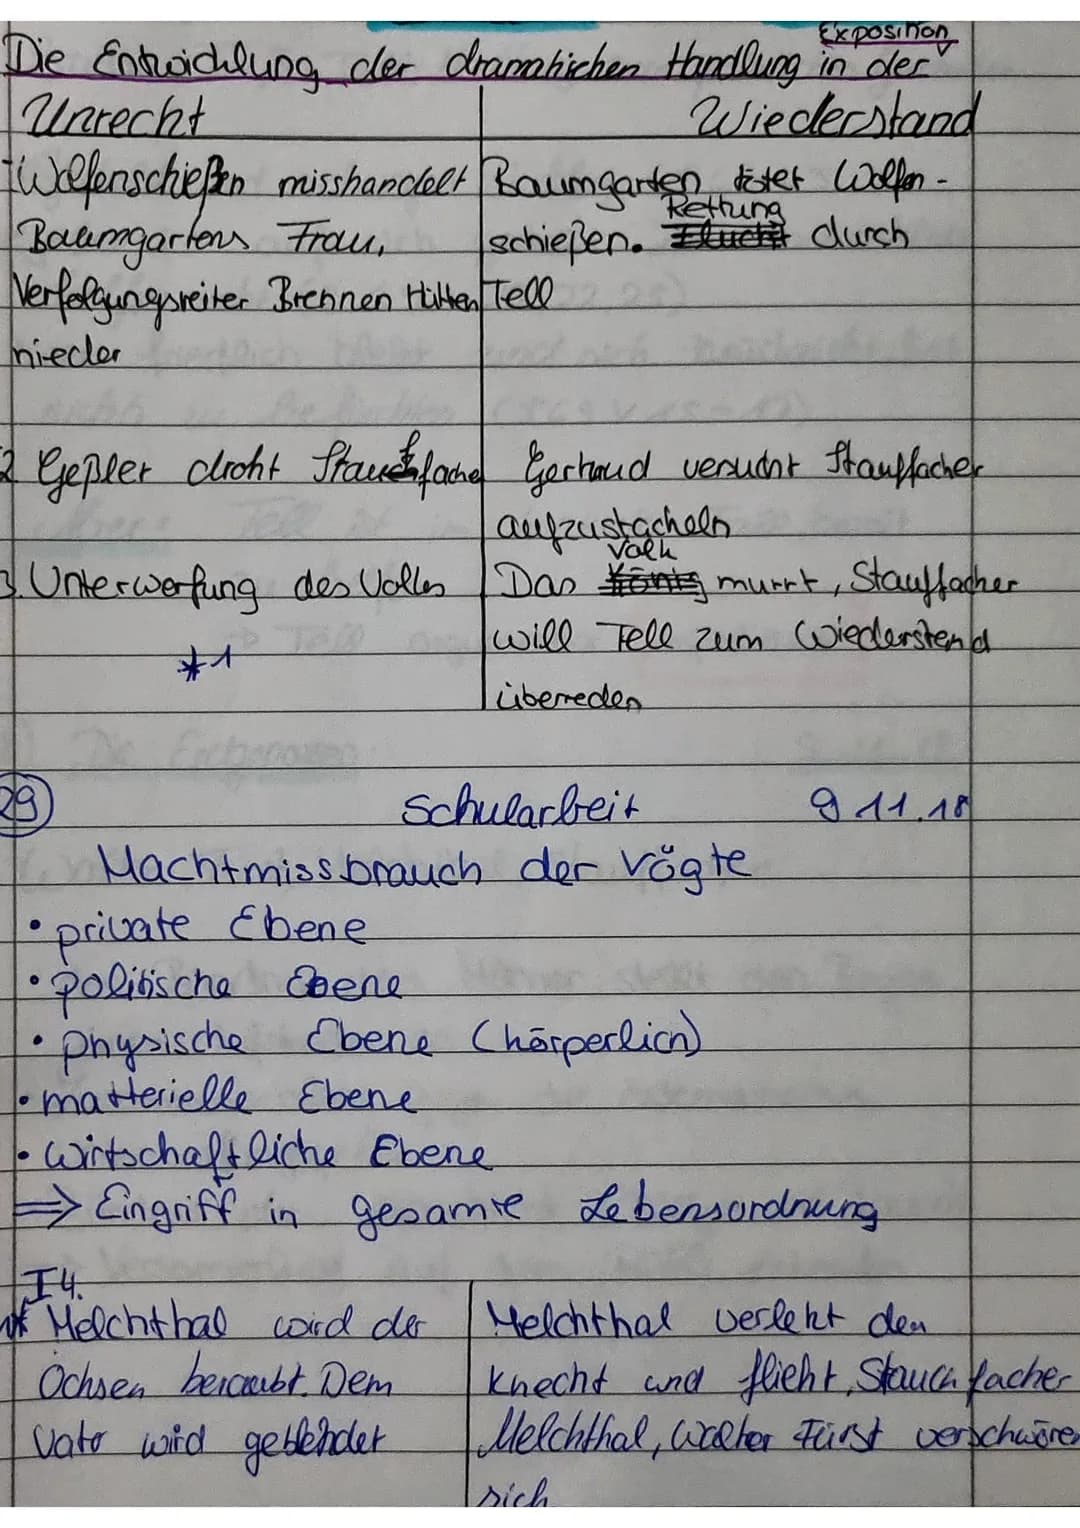 Exposition
Die Entwicklung der dramatischen Handlung in der
Unrecht
Wiederstand
1 Wolfenschießen misshandelt
Baumgartens Frau,
Verfolgungsreiter Brennen Hütten
nieder
Baumgarten tötet Wolfen-
Rettung
schießen. Flucht durch
Tell
2 Geßler droht Stauffacher
Gertraud versucht Stauffacher
aufzustacheln
3. Unterwerfung des Volkes
*1
Volk
Das König murrt, Stauffacher
will Tell zum Wiederstend
überreden
29
Schularbeit 9 11.18
Machtmissbrauch der Vögte
• private Ebene
• politische Ebene
• physische Ebene (körperlich)
• matterielle Ebene
• wirtschaftliche Ebene
⇒ Eingriff in gesamte Lebensordnung
I4.
Melchthal wird der
Ochsen beraubt. Dem
Vater wird geblendet
Melchthal verlekt den
Knecht und flieht, Stauffacher
Melchthal, Walther Fürst verschwören
sich